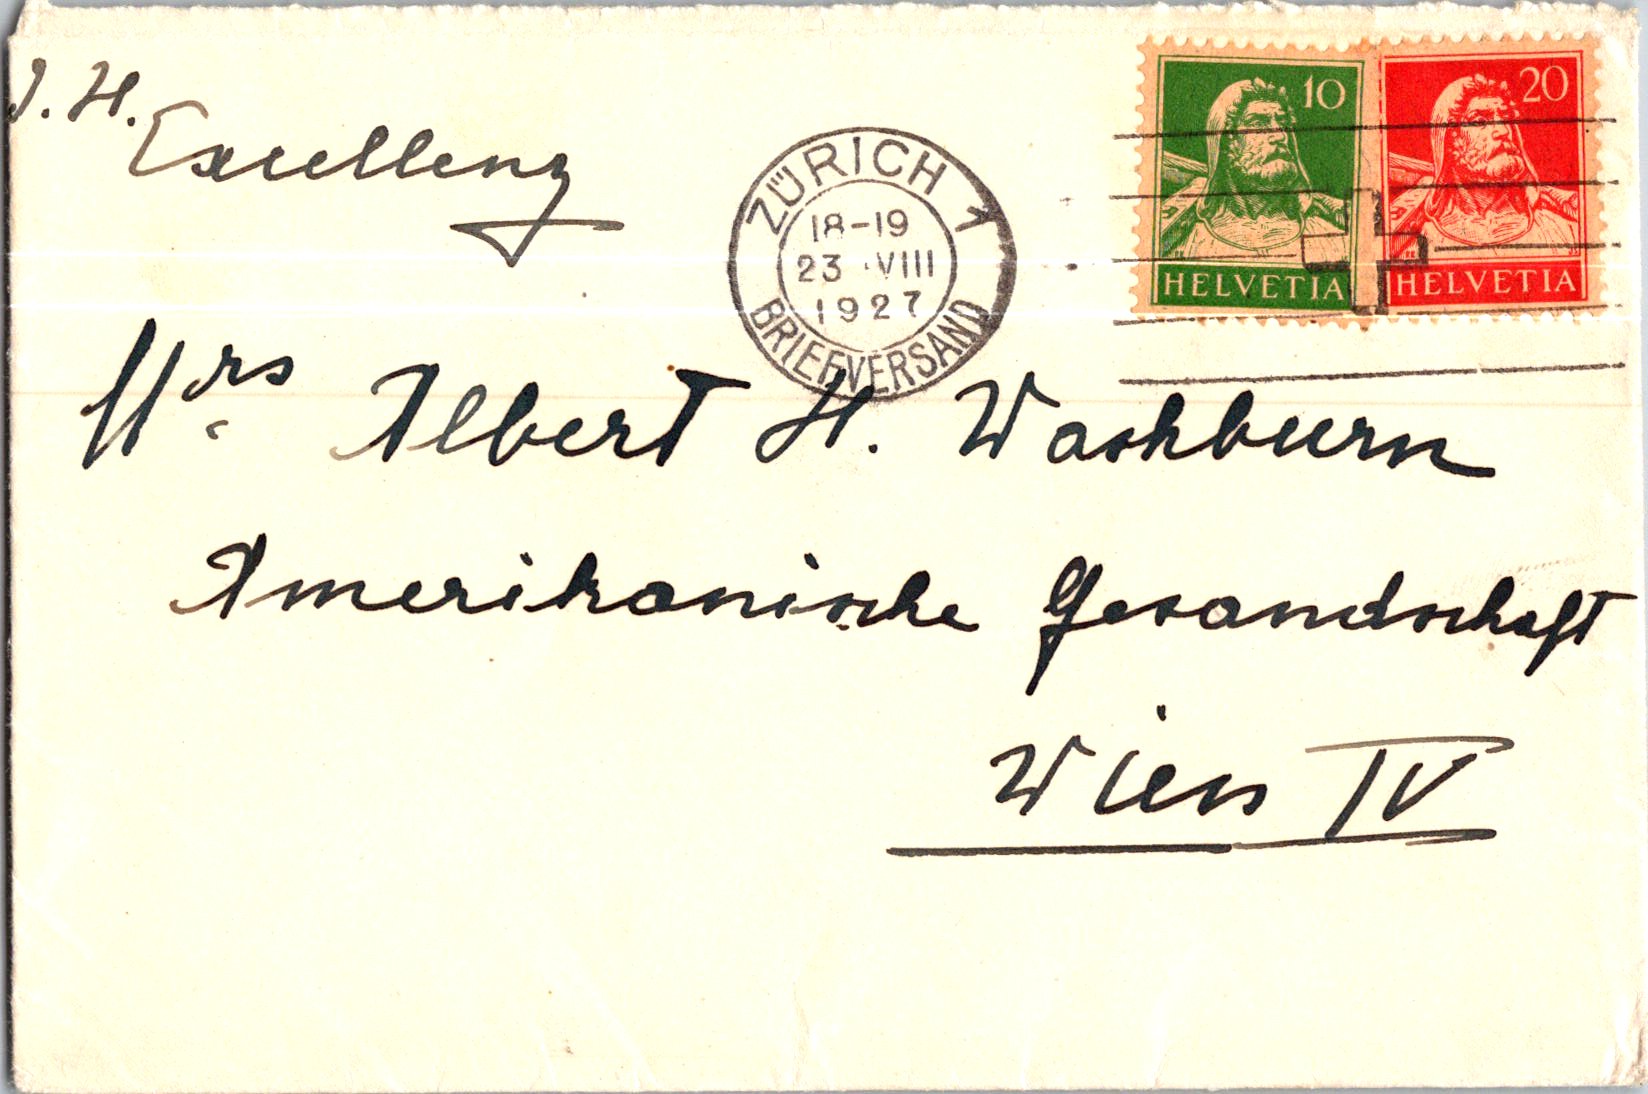 I. H.
Excellenz
ZÜRICH 1
18-19
23.VIII
1927
BRIEFVERSAND
10
HELVETIA
20
HELVETIA
Mrs Albert H. Washburn
Amerikanische Gesandschaft
Wien IV